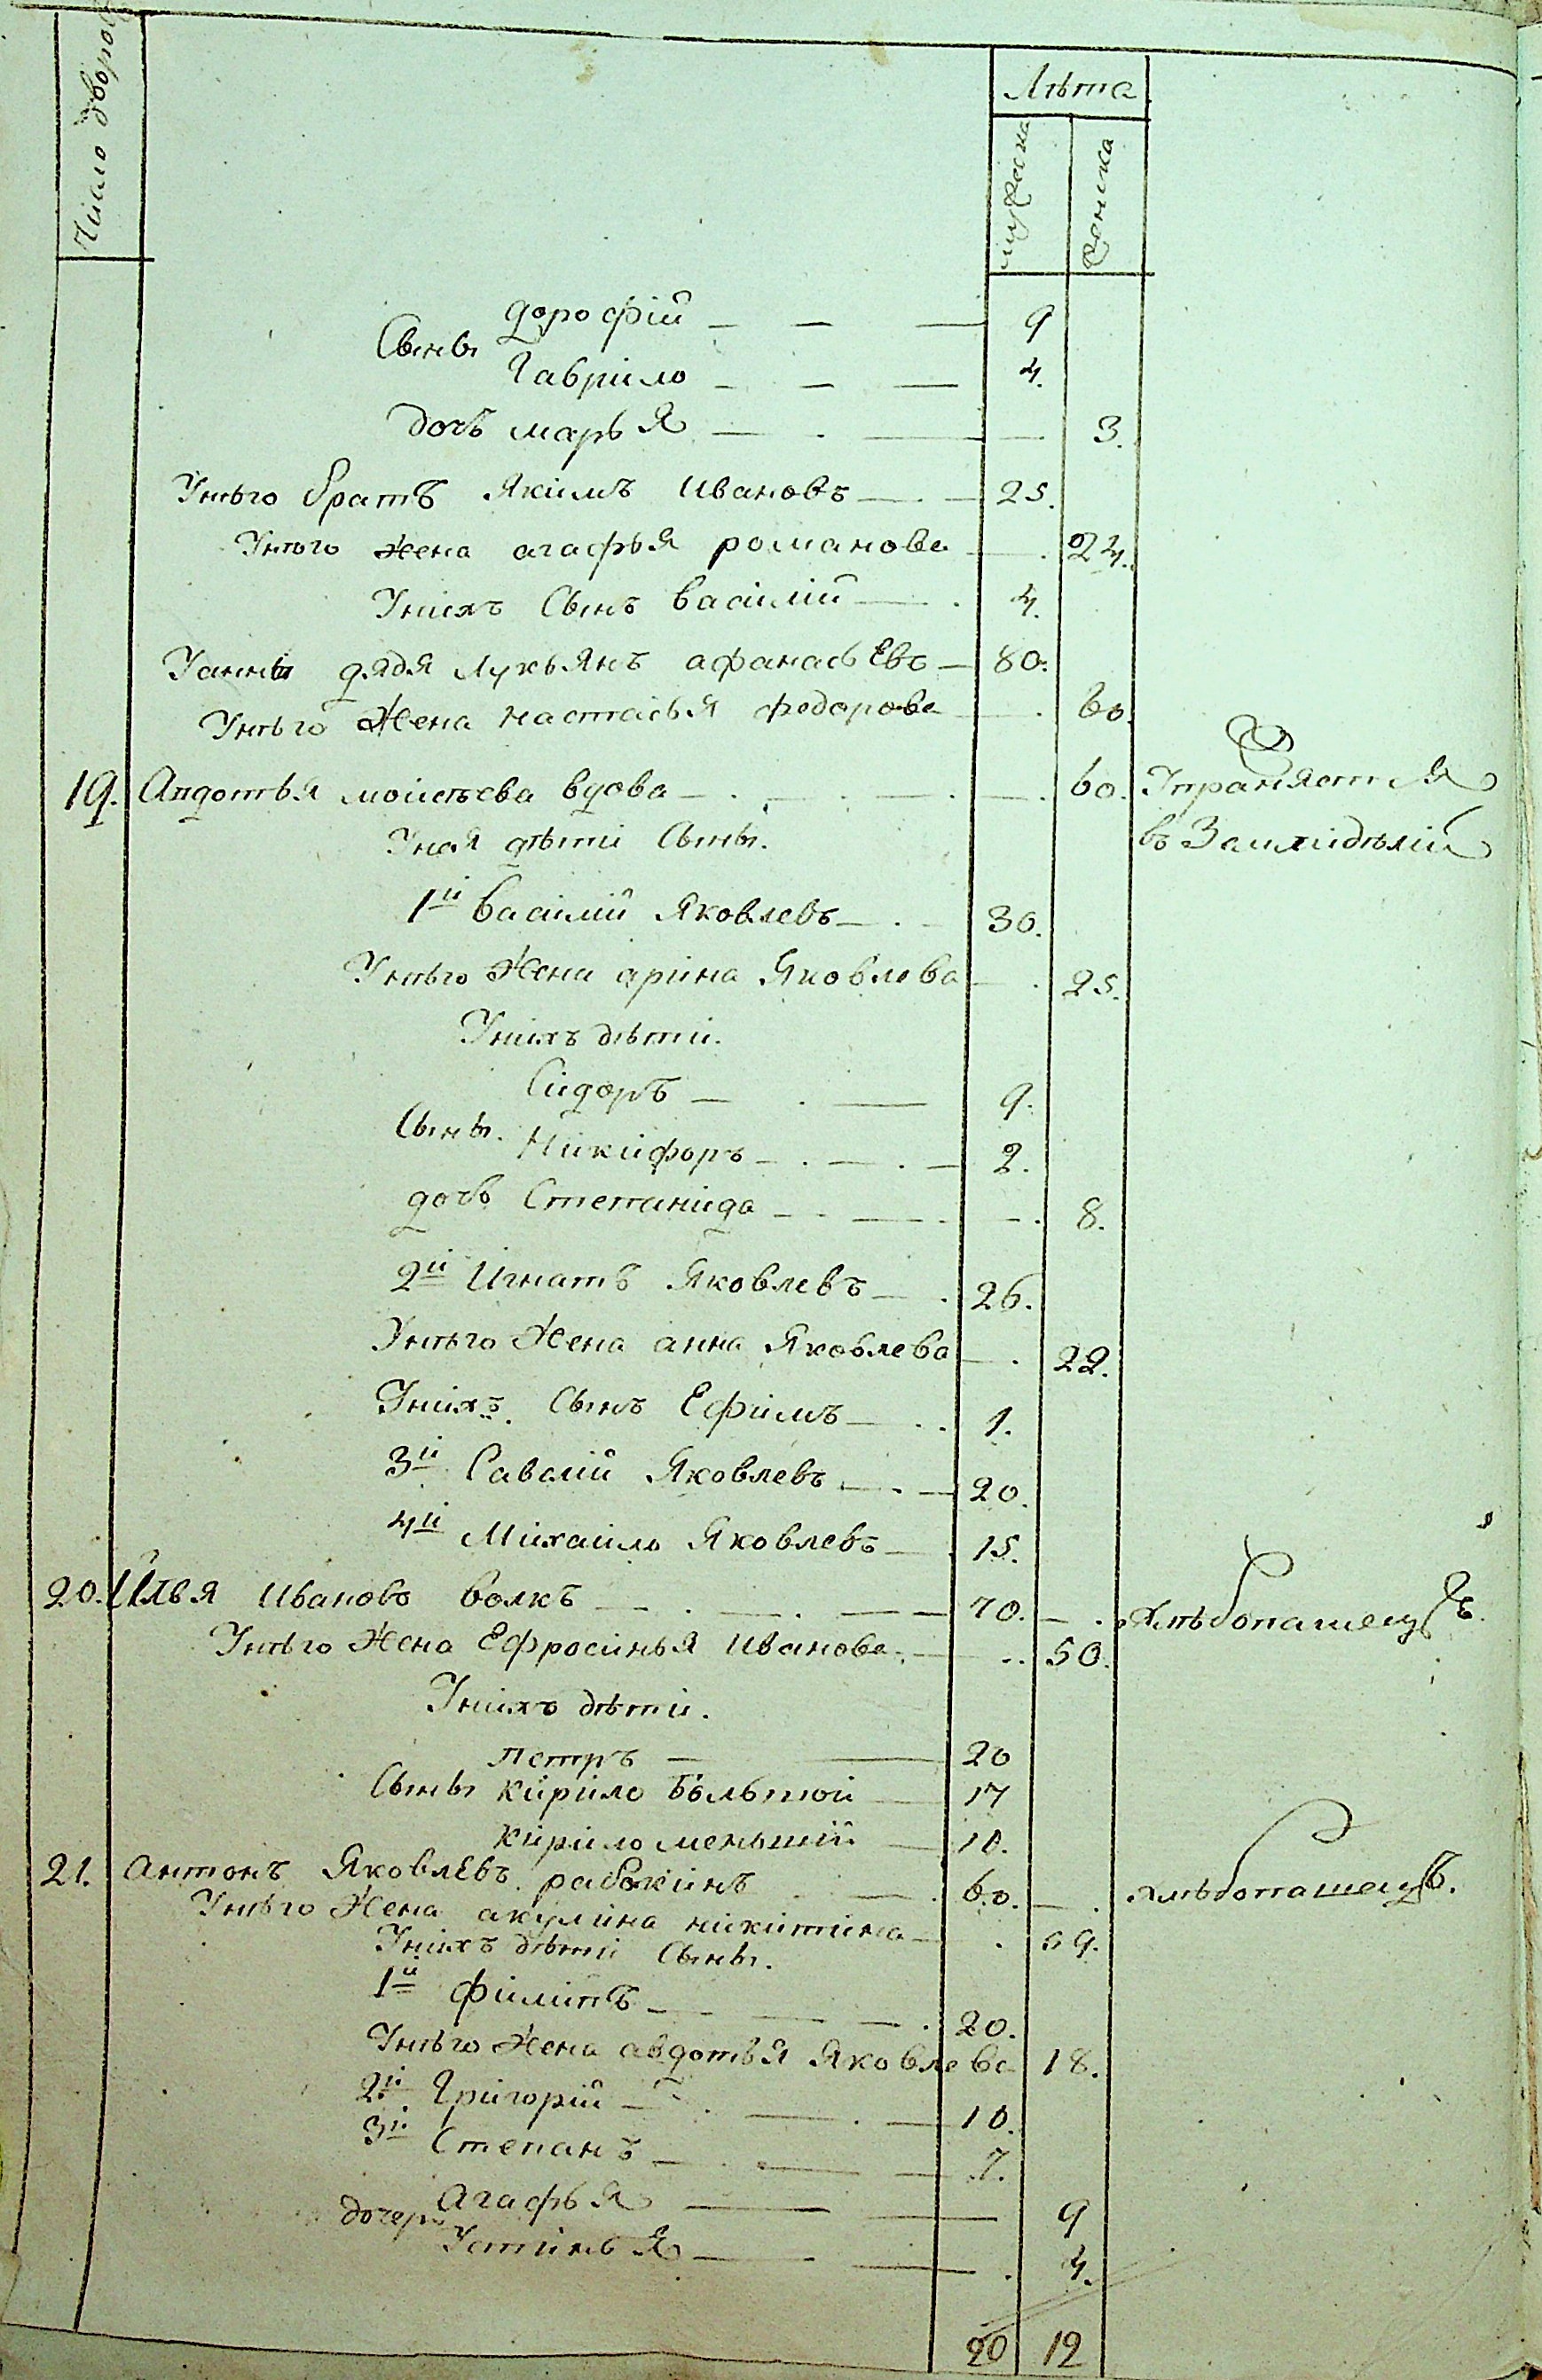 Число дворовъ
Лѣта
мужеска
женска
Сыны дорофій — — — 9
Гаврило — — — 4.
дочь марья — . — — 3.
Унѣго братъ Якимъ Ивановъ — . — 25.
Унѣго жена агафья романова — . 24.
Унихъ Сынъ василій — . 4.
Уанны дядя Лукьянъ афанасьевъ — 80.
Унѣго Жена настасья федорова — . 60.
19. Авдотья моисѣева вдова — . — . — . — . 60. Упражняется
въ Землидѣліи
Унея дѣти Сыны.
1й василій Яковлевъ — . — 30.
Унѣго Жена арина Яковлева — . 25.
Унихъ дѣти.
Сидоръ — . — 9.
Сыны. Никифоръ — . — . — 2.
дочь Степанида — . — . — . 8.
2й Игнатъ Яковлевъ — . 26.
Унѣго Жена анна Яковлева — . 22.
Унихъ Сынъ Ефимъ — . . 1.
3й Савелій Яковлевъ — . — 20.
4й Михаило Яковлевъ — . 15.
20. Илья Ивановъ волкъ — . — . — — 70. — . Хлѣбопашецъ.
Унѣго Жена Ефросинья Иванова . — . . 50.
Унихъ дѣти.
петръ — — 20
Сыны кирило большой — 17
кирило меньшій — 10.
21. Антонъ Яковлевъ рабокинъ . — . 60. — . хлѣбопашецъ.
Унѣго Жена акулина никитина — . 59.
Унихъ дѣти Сыны.
1й филипъ — — — . 20.
Унѣго Жена авдотья Яковлева 18.
2й Григорій — . — . — 10.
3й Степанъ — . — — 7.
агафья — — 9
дочери
Устинья — . — . 4.
20 12